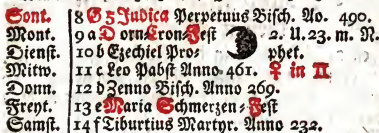 Sont. 8 G 5 Judica Perpetuus Bisch. Ao. 490.
Mont. 9 a Dorn-Cron-Fest 2. U. 23. m. N.
Dienst. 10 b Ezechiel Prophet.
Mitw. 11 c Leo Pabst Anno 461. ♀ in ♊
Donn. 12 d Zenno Bisch. Anno 269.
Freyt. 13 e Maria Schmerzen-Fest
Samst. 14 f Tiburtius Martyr. Anno 232.